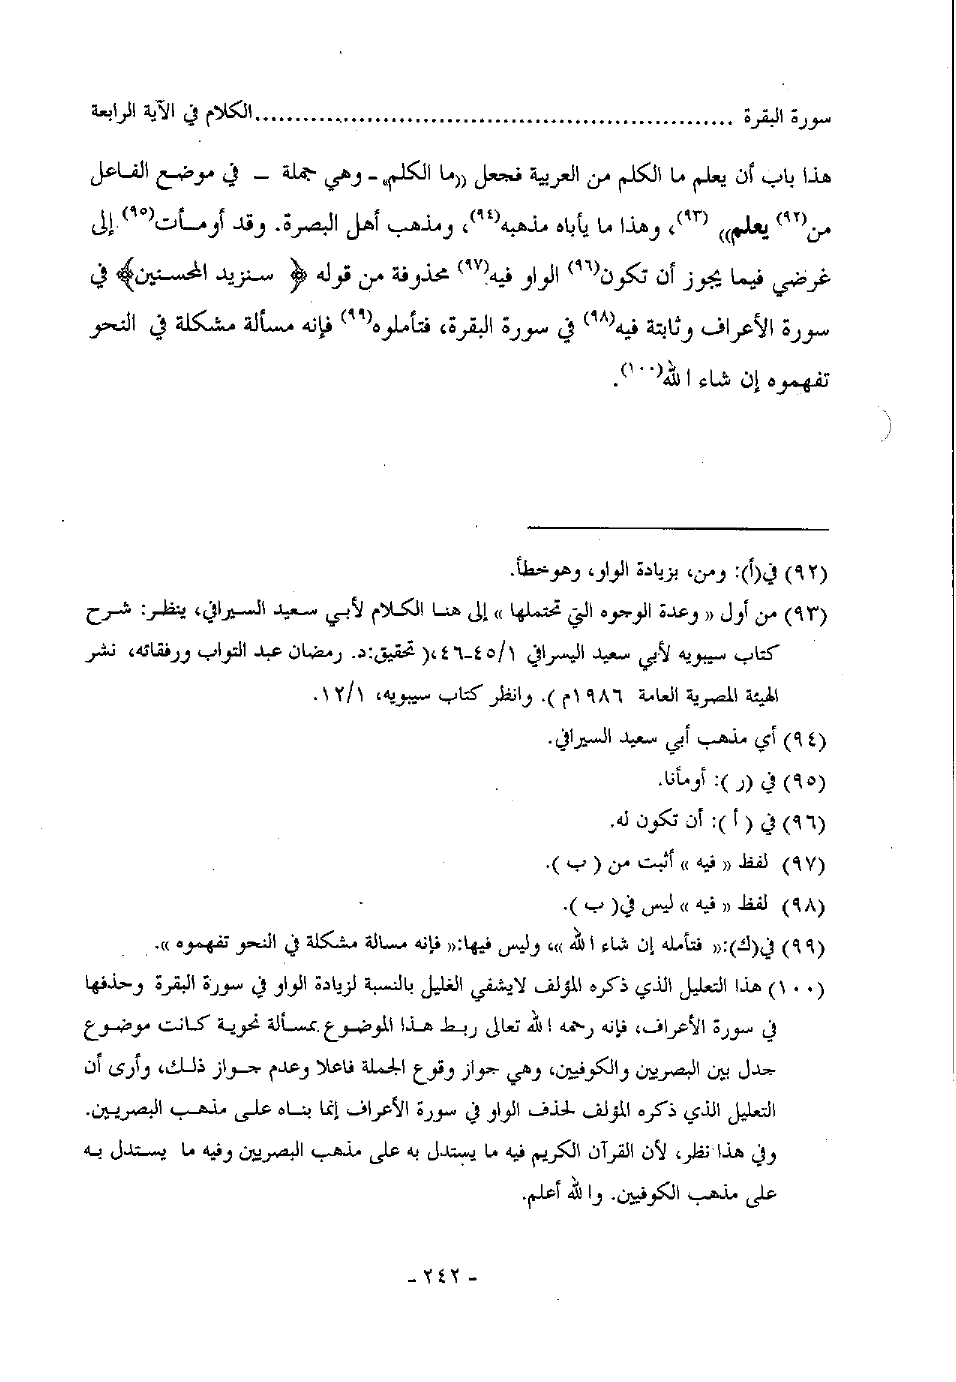 سورة البقرة ............................................................الكلام في الآية الرابعة
هذا باب أن يعلم ما الكلم من العربية فجعل ((ما الكلم)) - وهي جملة – في موضع الفاعل
من(٩٢) يعلم))(٩٣)، وهذا ما يأباه مذهبه(٩٤)، ومذهب أهل البصرة. وقد أومأت(٩٥) إلى
غرضي فيما يجوز أن تكون(٩٦) الواو فيه(٩٧) محذوفة من قوله ﴿ سنزيد المحسنين﴾ في
سورة الأعراف وثابتة فيه(٩٨) في سورة البقرة، فتأملوه(٩٩) فإنه مسألة مشكلة في النحو
تفهموه إن شاء الله(١٠٠).
(٩٢) في(أ): ومن، بزيادة الواو، وهو خطأ.
(٩٣) من أول « وعدة الوجوه التي تحتملها » إلى هنا الكلام لأبي سعيد السيرافي، ينظر: شرح
كتاب سيبويه لأبي سعيد اليسرافي ٤٥/١-٤٦،( تحقيق:د. رمضان عبد التواب ورفقائه، نشر
الهيئة المصرية العامة ١٩٨٦م ). وانظر كتاب سيبويه، ١٢/١.
(٩٤) أي مذهب أبي سعيد السيرافي.
(٩٥) في (ر ): أومأنا.
(٩٦) في ( أ ): أن تكون له.
(٩٧) لفظ « فيه » أثبت من ( ب ).
(٩٨) لفظ « فيه » ليس في( ب ).
(٩٩) في(ك):« فتأمله إن شاء الله »، وليس فيها:« فإنه مسالة مشكلة في النحو تفهموه ».
(١٠٠) هذا التعليل الذي ذكره المؤلف لايشفي الغليل بالنسبة لزيادة الواو في سورة البقرة وحذفها
في سورة الأعراف، فإنه رحمه الله تعالى ربط هذا الموضوع بمسألة نحوية كانت موضوع
جدل بين البصريين والكوفيين، وهي جواز وقوع الجملة فاعلا وعدم جواز ذلك، وأرى أن
التعليل الذي ذكره المؤلف لحذف الواو في سورة الأعراف إنما بناه على مذهب البصريين.
وفي هذا نظر، لأن القرآن الكريم فيه ما يستدل به على مذهب البصريين وفيه ما يستدل به
على مذهب الكوفيين. والله أعلم.
- ٢٤٢ -